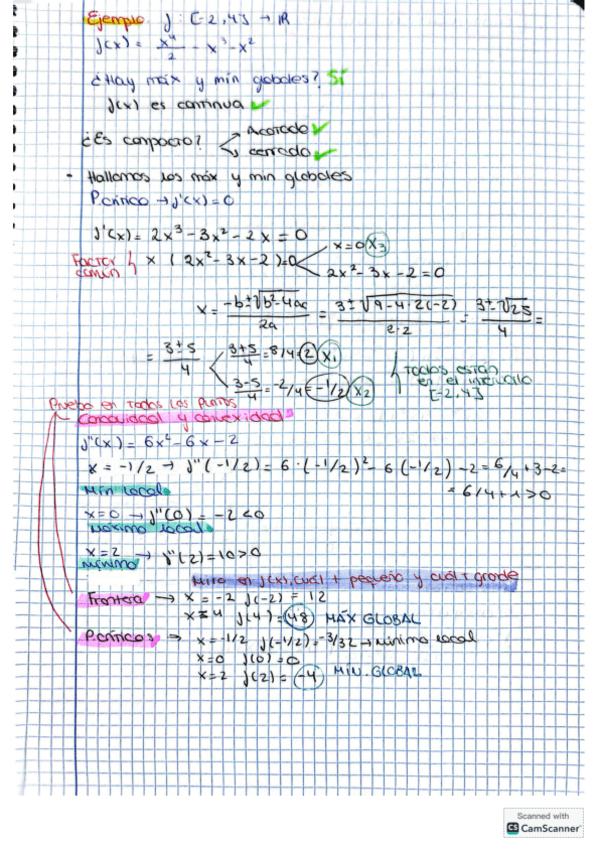 Ejemplo f: [-2,4] → IR
f(x) = x⁴/2 - x³ - x²
¿Hay máx y mín globales? Sí
f(x) es continua ✓
¿Es compacto? Acotado ✓
cerrado ✓
- Hallamos los máx y min globales
P. crítico → f'(x) = 0
f'(x) = 2x³ - 3x² - 2x = 0
Factor común x (2x² - 3x - 2) = 0 x = 0 x₃
2x² - 3x - 2 = 0
x = (-b ± √(b² - 4ac))/2a = (3 ± √(9 - 4·2(-2)))/2·2 = (3 ± √25)/4 =
= (3 ± 5)/4 (3+5)/4 = 8/4 = 2 x₁
(3-5)/4 = -2/4 = -1/2 x₂
Todos están en el intervalo [-2,4]
Pruebo en todos los puntos
Concavidad y convexidad
f''(x) = 6x² - 6x - 2
x = -1/2 → f''(-1/2) = 6·(-1/2)² - 6(-1/2) - 2 = 6/4 + 3 - 2 =
= 6/4 + 1 > 0
Mín local
x = 0 → f''(0) = -2 < 0
Máximo local
x = 2 → f''(2) = 10 > 0
mínimo
Miro en f(x), cuál + pequeño y cuál + grande
Frontera → x = -2 f(-2) = 12
x = 4 f(4) = 48 MÁX GLOBAL
P. críticos → x = -1/2 f(-1/2) = -3/32 → Mínimo local
x = 0 f(0) = 0
x = 2 f(2) = -4 MÍN. GLOBAL
Scanned with
CS CamScanner